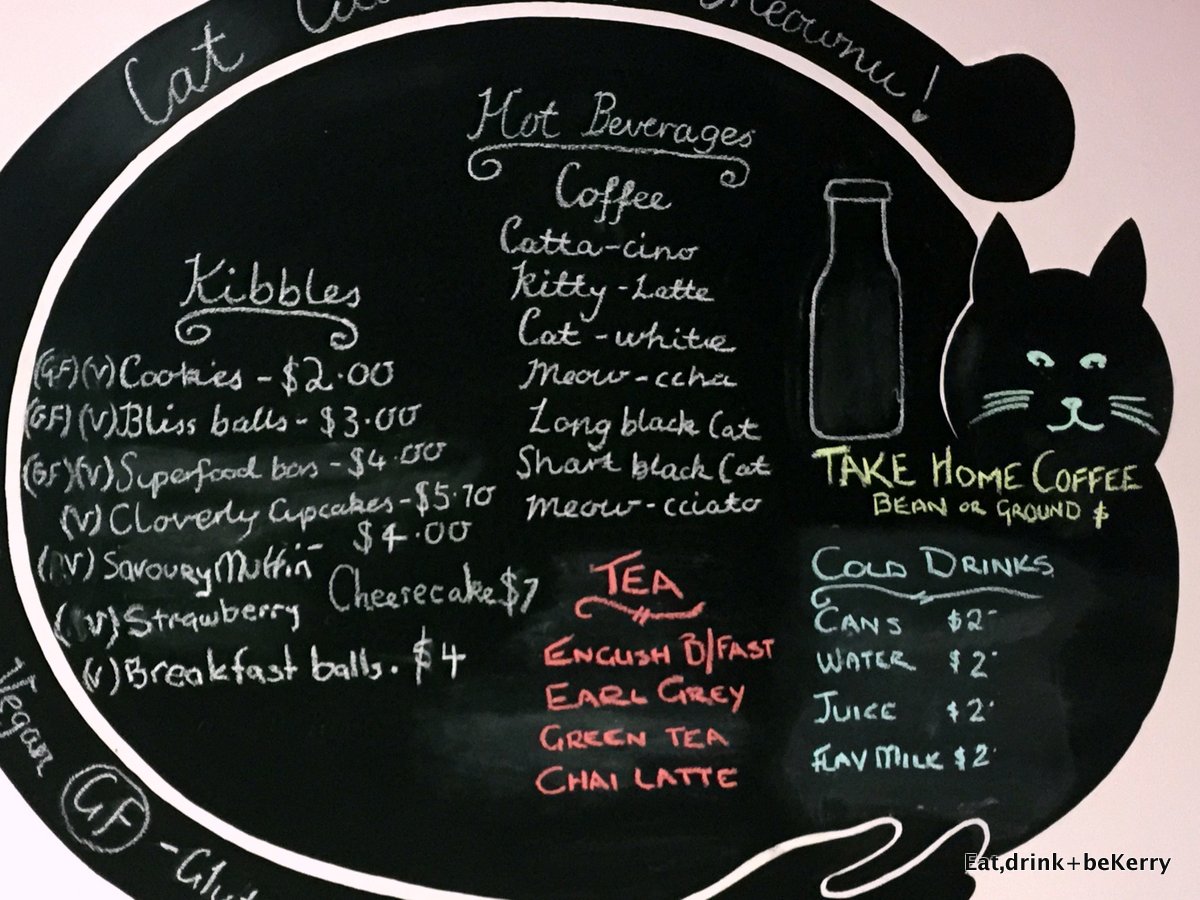 Cat Meownu!
Kibbles
(GF)(V)Cookies - $2.00
(GF)(V)Bliss balls - $3.00
(GF)(V)Superfood bars - $4.00
(V)Cloverly Cupcakes - $5.70
(V)Savoury Muffin - $4.00
(V)Strawberry Cheesecake $7
(V)Breakfast balls. $4
Hot Beverages
Coffee
Catta-cino
Kitty-Latte
Cat-white
Meow-ccha
Long black Cat
Short black Cat
Meow-cciato
TEA
ENGLISH B/FAST
EARL GREY
GREEN TEA
CHAI LATTE
TAKE HOME COFFEE
BEAN OR GROUND $
COLD DRINKS
CANS $2-
WATER $2-
JUICE $2-
FLAV MILK $2-
Vegan
GF - Glut
Eat,drink+beKerry